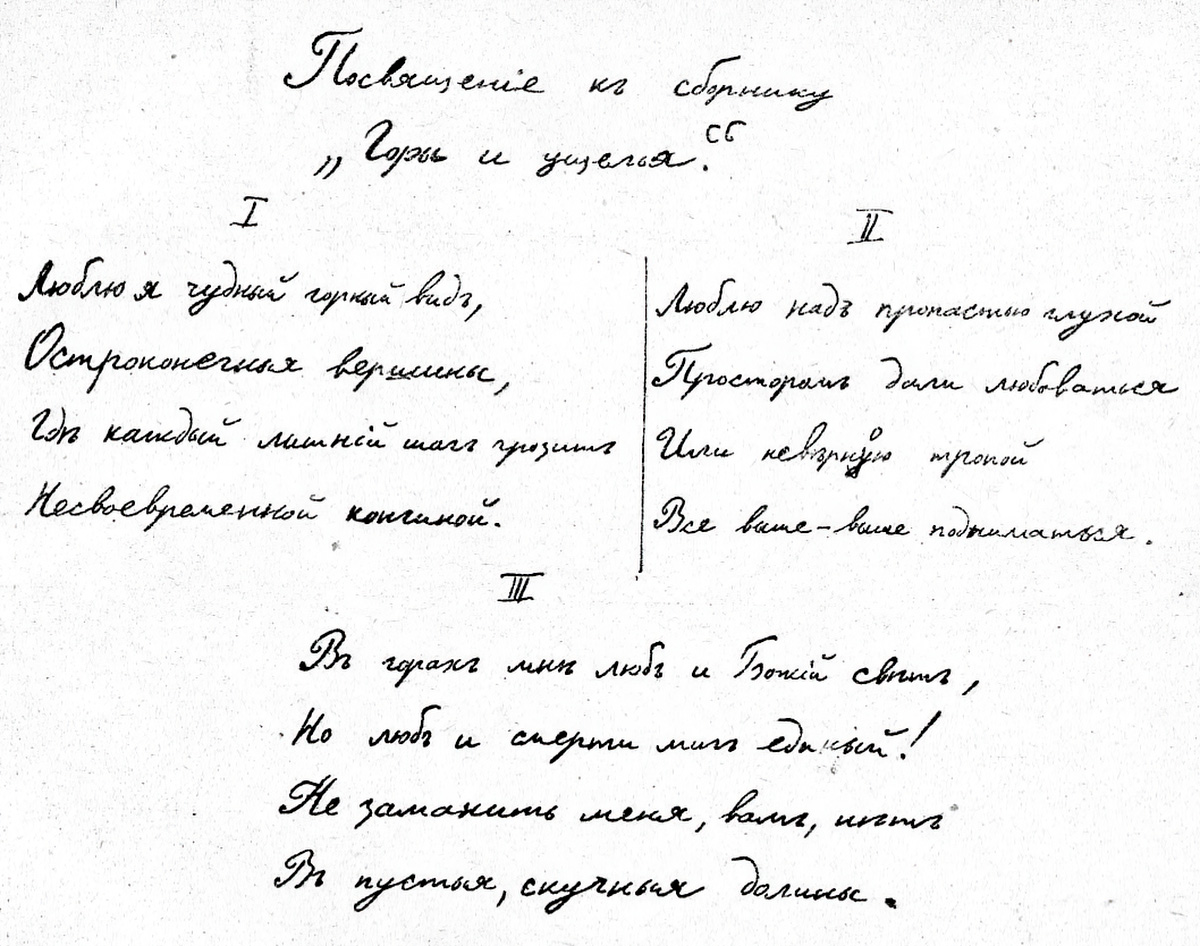 Посвященіе къ сборнику
„Горы и ущелья".
I
Люблю я чудный горный видъ,
Остроконечныя вершины,
Гдѣ каждый лишній шагъ грозитъ
Несвоевременной кончиной.
II
Люблю надъ пропастью глухой
Просторомъ дали любоваться
Или невѣрною тропой
Все выше – выше подниматься.
III
Въ горахъ мнѣ любъ и Божій свѣтъ,
Но любъ и смерти мигъ единый!
Не заманить меня, вамъ, нѣтъ
Въ пустыя, скучныя долины.